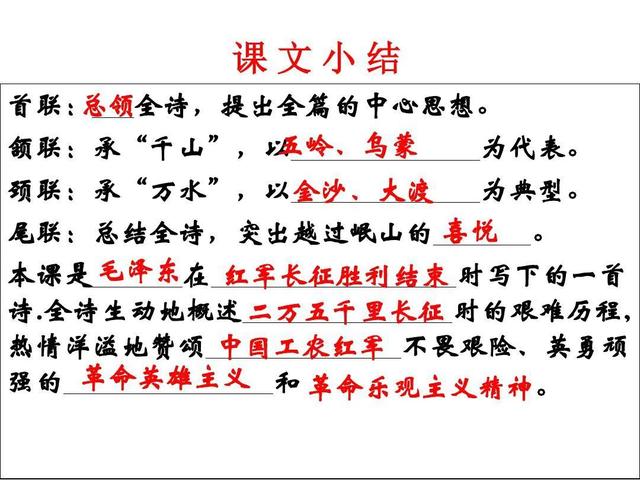 课文小结
首联：总领全诗，提出全篇的中心思想。
颔联：承“千山”，以五岭、乌蒙为代表。
颈联：承“万水”，以金沙、大渡为典型。
尾联：总结全诗，突出越过岷山的喜悦。
本课是毛泽东在红军长征胜利结束时写下的一首
诗.全诗生动地概述二万五千里长征时的艰难历程,
热情洋溢地赞颂中国工农红军不畏艰险、英勇顽
强的革命英雄主义和革命乐观主义精神。